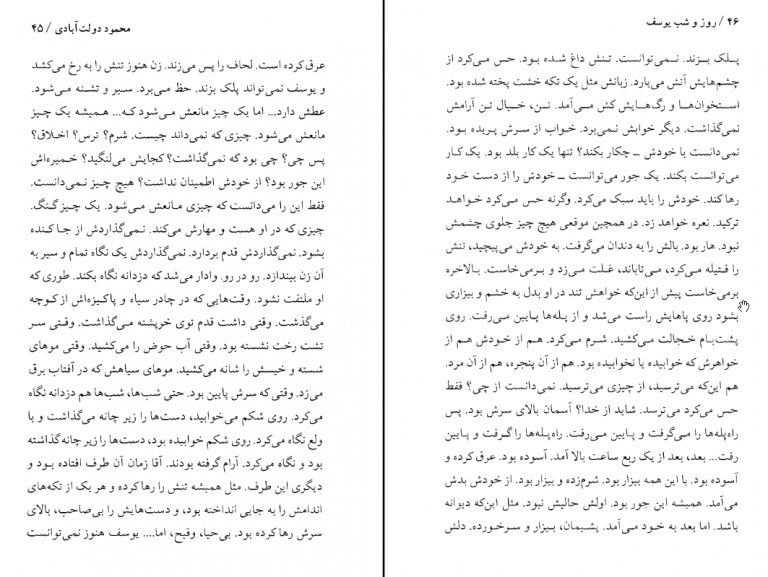 محمود دولت‌آبادی / ۴۵
عرق کرده است. لحاف را پس می‌زند. زن هنوز تنش را به رخ می‌کشد
و یوسف نمی‌تواند پلک بزند. حظ می‌برد. سیر و تشنه می‌شود.
عطش دارد... اما یک چیز مانعش می‌شود که... همیشه یک چیز
مانعش می‌شود. چیزی که نمی‌داند چیست. شرم؟ ترس؟ اخلاق؟
پس چی؟ چی بود که نمی‌گذاشت؟ کجایش می‌لنگید؟ خمیره‌اش
این جور بود؟ از خودش اطمینان نداشت؟ هیچ چیز نمی‌دانست.
فقط این را می‌دانست که چیزی مانعش می‌شود. یک چیز گنگ.
چیزی که در او هست و مهارش می‌کند. نمی‌گذاردش از جا کنده
بشود. نمی‌گذاردش قدم بردارد. نمی‌گذاردش یک نگاه تمام و سیر به
آن زن بیندازد. رو در رو. وادار می‌شد که دزدانه نگاه بکند. طوری که
او ملتفت نشود. وقت‌هایی که در چادر سیاه و پاکیزه‌اش از کوچه
می‌گذشت. وقتی داشت قدم توی خرپشته می‌گذاشت. وقتی سر
تشت رخت نشسته بود. وقتی آب حوض را می‌کشید. وقتی موهای
شسته و خیسش را شانه می‌کشید. موهای سیاهش که در آفتاب برق
می‌زد. وقتی که سرش پایین بود. حتی شب‌ها، شب‌ها هم دزدانه نگاه
می‌کرد. روی شکم می‌خوابید، دست‌ها را زیر چانه می‌گذاشت و با
ولع نگاه می‌کرد. روی شکم خوابیده بود، دست‌ها را زیر چانه گذاشته
بود و نگاه می‌کرد. آرام گرفته بودند. آقا زمان آن طرف افتاده بود و
دیگری این طرف. مثل همیشه تنش را رها کرده و هر یک از تکه‌های
اندامش را به جایی انداخته بود، و دست‌هایش را بی‌صاحب، بالای
سرش رها کرده بود. بی‌حیا، وقیح، اما.... یوسف هنوز نمی‌توانست
۴۶ / روز و شب یوسف
پلک بزند. نمی‌توانست. تنش داغ شده بود. حس می‌کرد از
چشم‌هایش آتش می‌بارد. زبانش مثل یک تکه خشت پخته شده بود.
استخوان‌ها و رگ‌هایش کش می‌آمد. تن، خیال تن آرامش
نمی‌گذاشت. دیگر خوابش نمی‌برد. خواب از سرش پریده بود.
نمی‌دانست با خودش ـ چکار بکند؟ تنها یک کار بلد بود. یک کار
می‌توانست بکند. یک جور می‌توانست ـ خودش را از دست خود
رها کند. خودش را باید سبک می‌کرد. وگرنه حس می‌کرد خواهد
ترکید. نعره خواهد زد. در همچین موقعی هیچ چیز جلوی چشمش
نبود. هار بود. بالش را به دندان می‌گرفت. به خودش می‌پیچید، تنش
را فتیله می‌کرد، می‌تاباند، غلت می‌زد و برمی‌خاست. بالاخره
برمی‌خاست پیش از این‌که خواهش تند در او بدل به خشم و بیزاری
بشود روی پاهایش راست می‌شد و از پله‌ها پایین می‌رفت. روی
پشت‌بام خجالت می‌کشید. شرم می‌کرد. هم از خودش هم از
خواهرش که خوابیده یا نخوابیده بود. هم از آن پنجره، هم از آن مرد.
هم این‌که می‌ترسید، از چیزی می‌ترسید. نمی‌دانست از چی؟ فقط
حس می‌کرد می‌ترسد. شاید از خدا؟ آسمان بالای سرش بود. پس
راه‌پله‌ها را می‌گرفت و پایین می‌رفت. راه‌پله‌ها را گرفت و پایین
رفت... بعد، بعد از یک ربع ساعت بالا آمد. آسوده بود. عرق کرده و
آسوده بود. با این همه بیزار بود. شرم‌زده و بیزار بود. از خودش بدش
می‌آمد. همیشه این جور بود. اولش حالیش نبود. مثل این‌که دیوانه
باشد. اما بعد به خود می‌آمد. پشیمان، بیزار و سرخورده. دلش